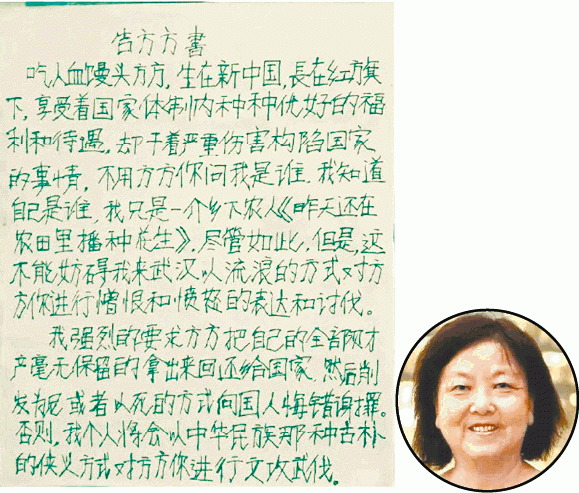 告方方書
吃人血馒头方方，生在新中国，長在红旗
下，享受着国家体制内种种优好的福
利和待遇，却干着严重伤害构陷国家
的事情，不用方方你问我是谁，我知道
自己是谁，我只是一个乡下农人《昨天还在
农田里播种花生》，尽管如此，但是，这
不能妨碍我来武汉以流浪的方式对方
方你进行憎恨和愤怒的表达和讨伐。
我强烈的要求方方把自己的全部财
产毫无保留的拿出来回还给国家，然后削
发为尼或者以死的方式向国人悔错谢罪。
否则，我个人将会以中华民族那种古朴
的侠义方式对方方你进行文攻武伐。